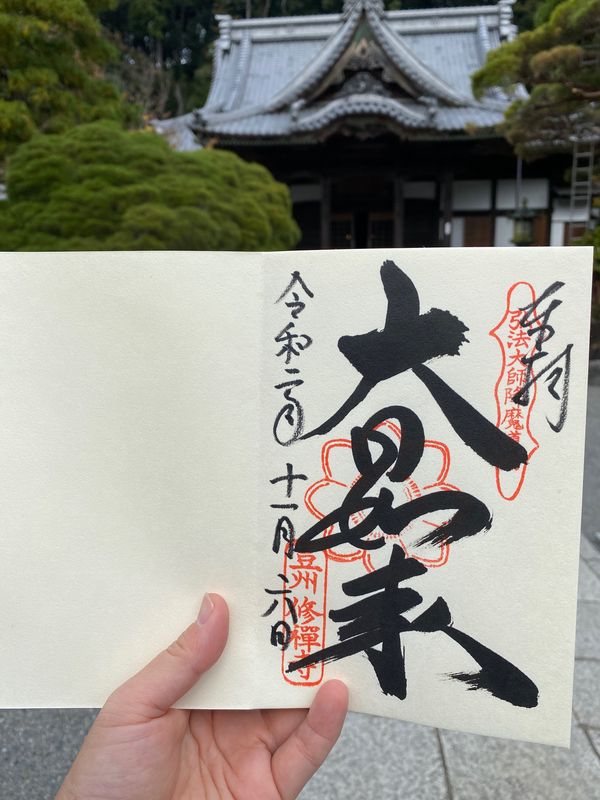 奉拝
弘法大師降魔
大日如来
令和二年十一月六日
豆州修禪寺